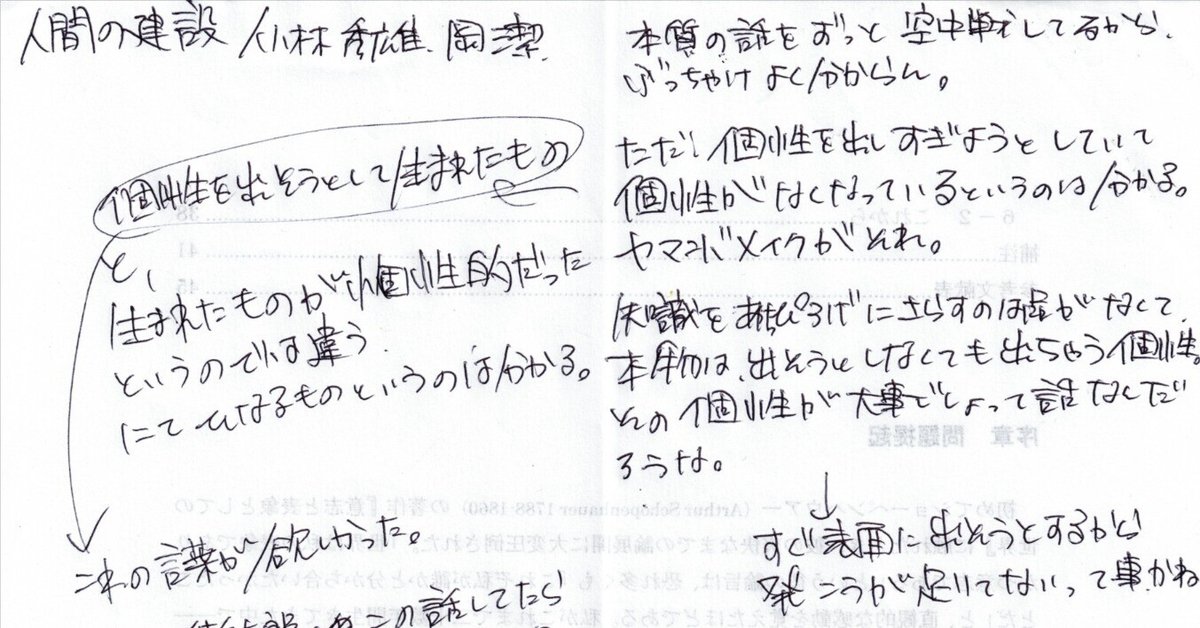 人間の建設/小林秀雄、岡潔
個性を出そうとして生まれたもの
と、
生まれたものが個性的だった
というのでは違う
にてひなるものというのは分かる。
これの言葉が欲かった。
この話してたら
本質の話をずっと空中戦してるから、
ぶっちゃけよく分からん。
ただ、個性を出しすぎようとしていて
個性がなくなっているというのは分かる。
ヤマンバメイクがそれ。
知識をあけぴろげにさらすのは品がなくて、
本物は、出そうとしなくても出ちゃう個性。
その個性が大事でしょって話なんだ
ろうな。
すぐ表面に出そうとするから
発こうが足りてないって事かね
6－2 これから 38
補注 41
参考文献表 45
序章 問題提起
初めてショーペンハウアー (Arthur Schopenhauer 1788-1860) の著作『意志と表象としての